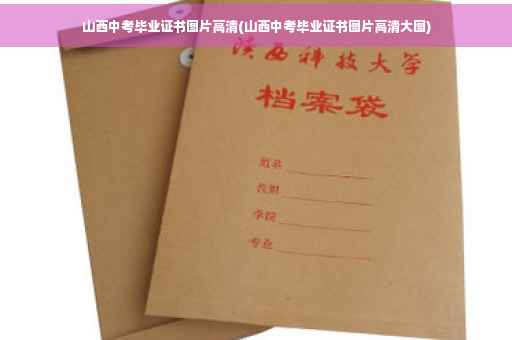 山西中考毕业证书图片高清(山西中考毕业证书图片高清大图)
陕西科技大学
档案袋
姓名
学院
专业